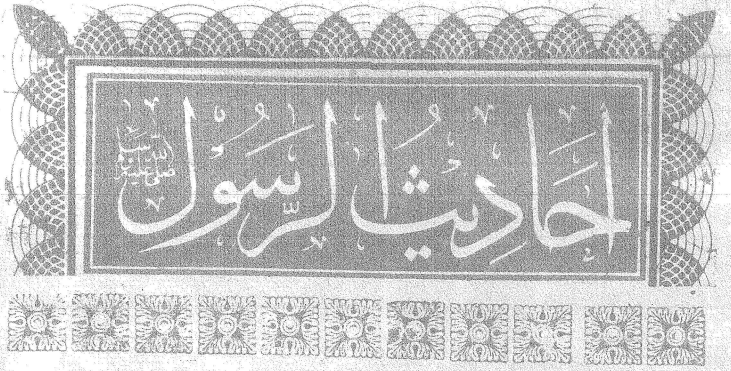 احاديث الرسول صلى الله عليه وسلم